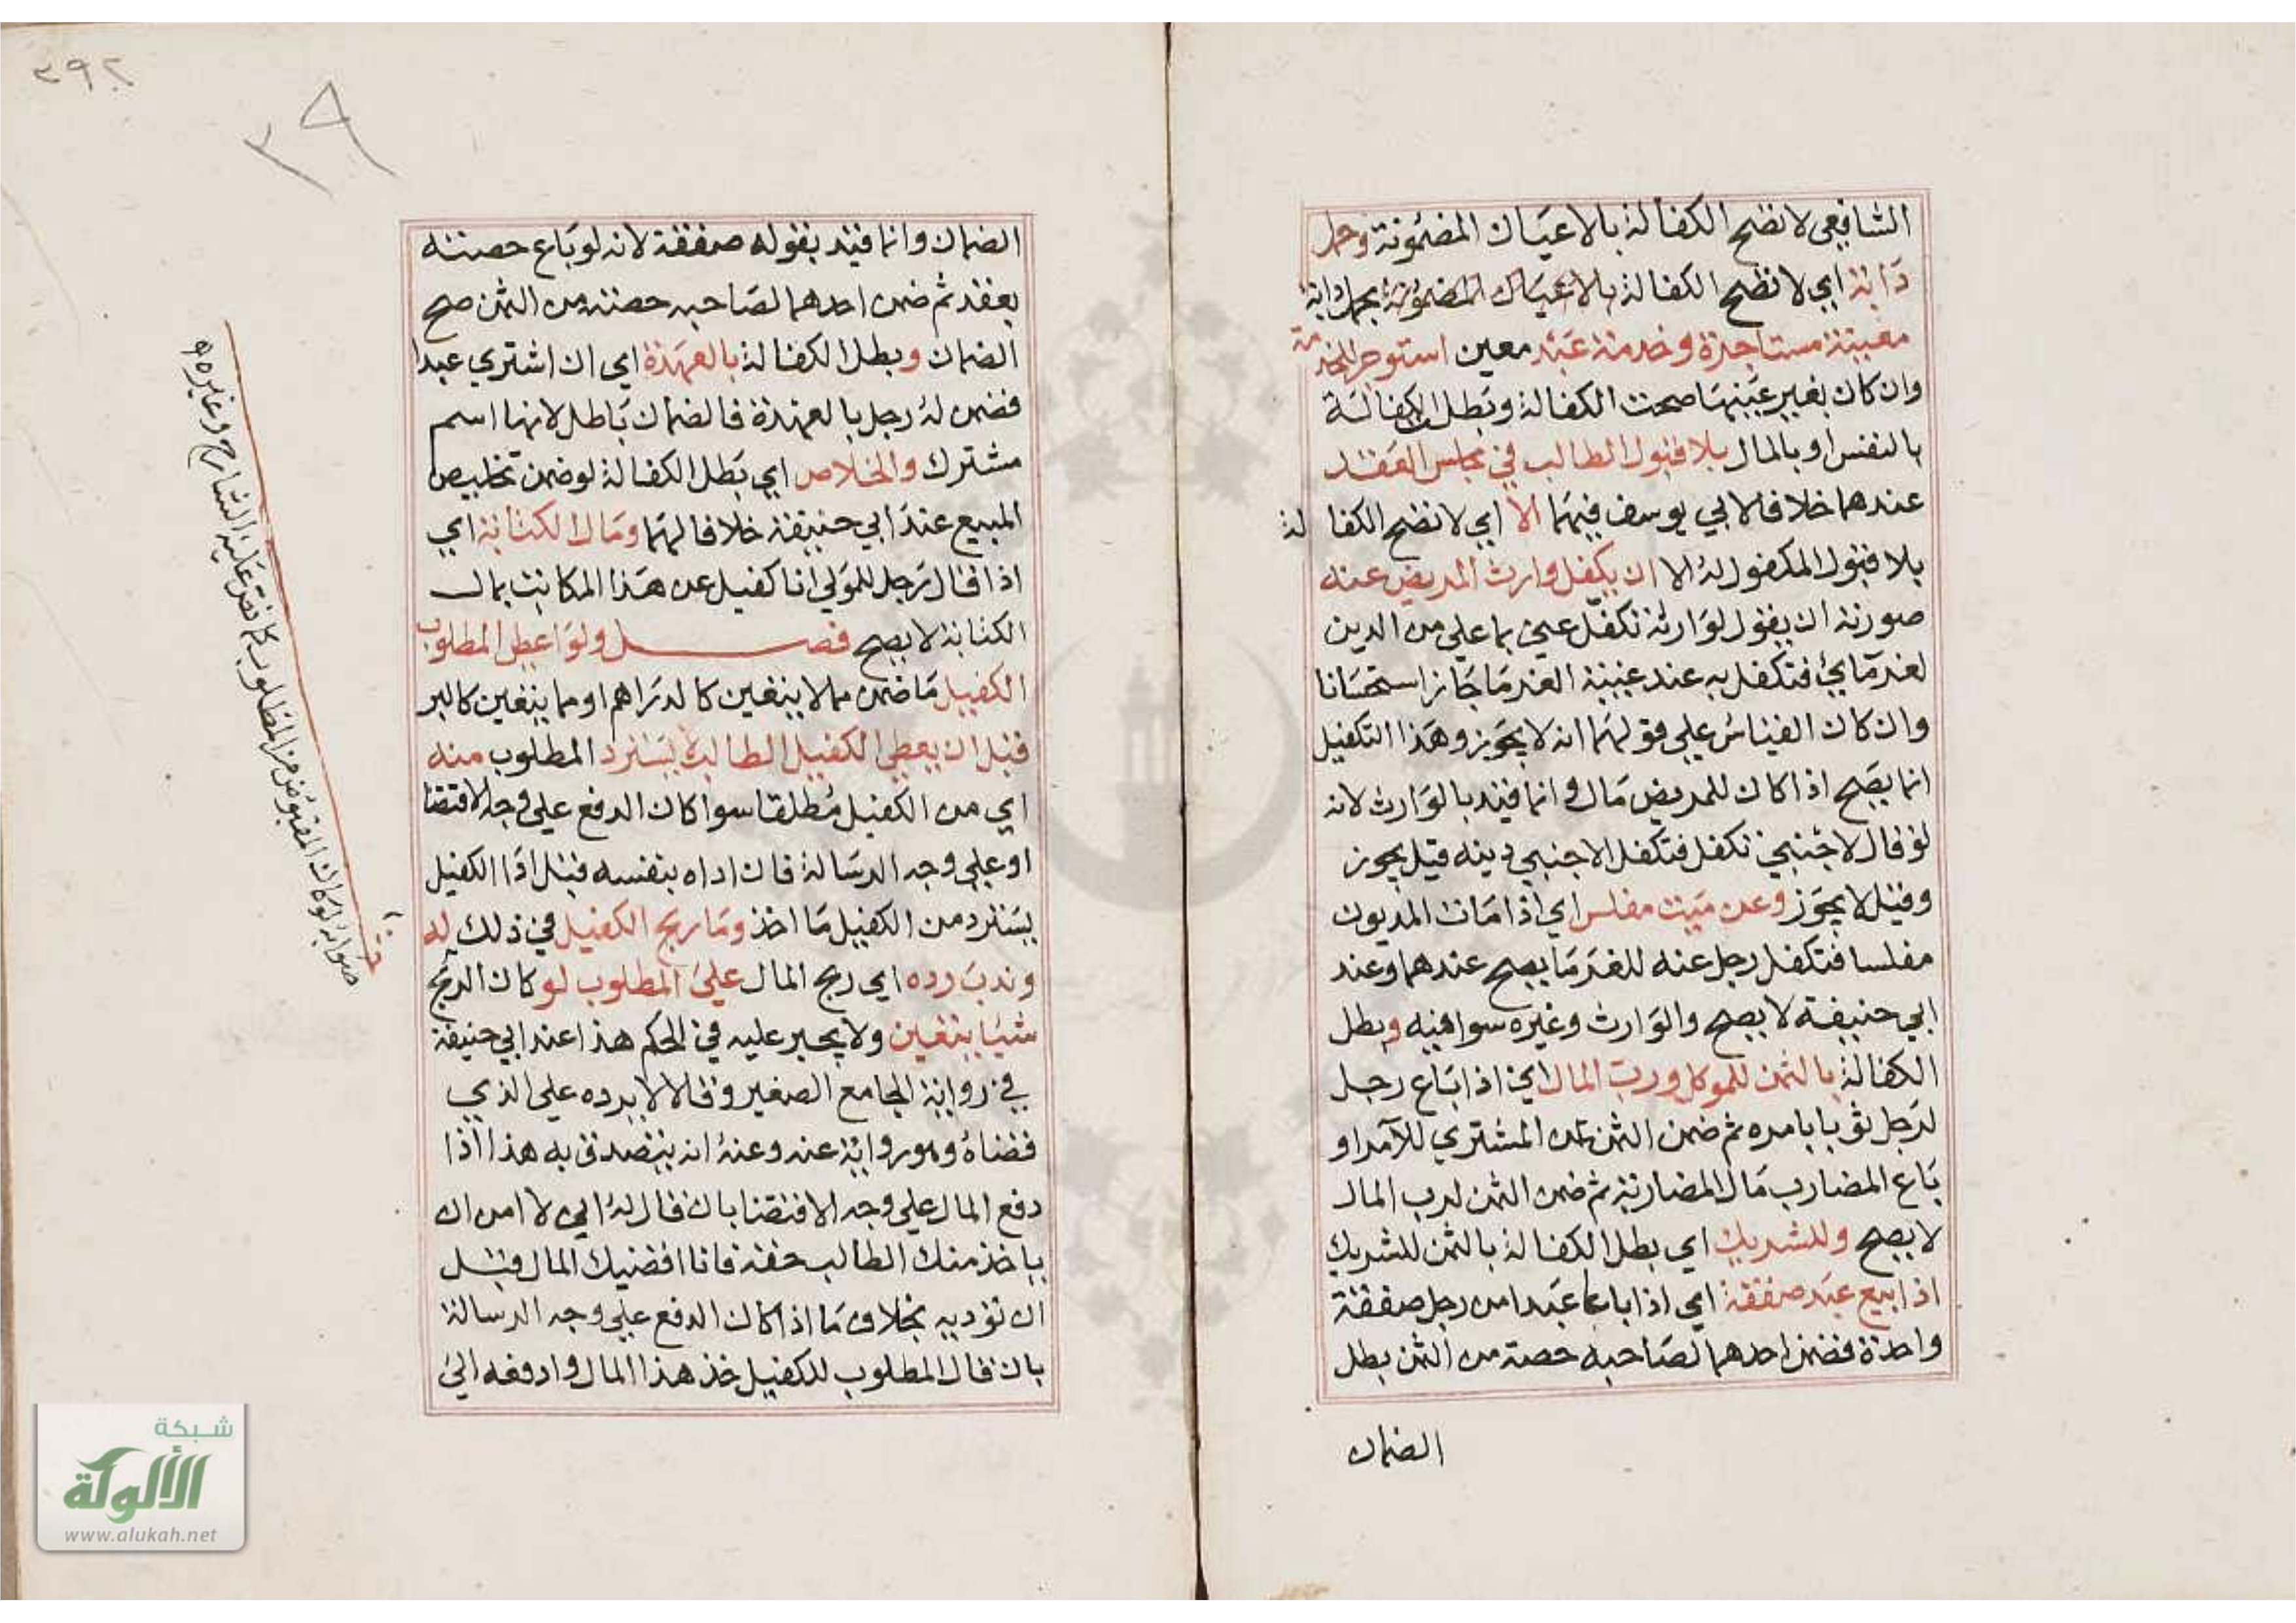 الشافعي لا تصح الكفالة بالاعيان المضمونة وحمل
دابة اي لا تصح الكفالة بالاعيان المضمونة بحمل دابة
معينة مستاجرة وخدمة عبد معين استوجر للخدمة
وان كان بغير عينها صحت الكفالة وبطل الكفالة
بالنفس او بالمال بلا قبول الطالب في مجلس العقد
عندهما خلافا لابي يوسف فيهما الا اي لا تصح الكفالة
بلا قبول المكفول له الا ان يكفل وارث المريض عنه
صورته ان يقول لوارثه تكفل عني بما علي من الدين
لغرمائي فتكفل به عند غيبة الغرما جاز استحسانا
وان كان القياس علي قولهما انه لا يجوز وهذا التكفيل
انما يصح اذا كان للمريض مال وانما قيد بالوارث لانه
لو قال لاجنبي تكفل فتكفل الاجنبي دينه قيل يجوز
وقيل لا يجوز وعن ميت مفلس اي اذا مات المديون
مفلسا فتكفل رجل عنه للغرما يصح عندهما وعند
ابي حنيفة لا يصح والوارث وغيره سوا فيه وبطل
الكفالة بالثمن للموكل ورب المال اي اذا باع رجل
لرجل ثوبا بامره ثم ضمن الثمن عن المشتري للآمر او
باع المضارب مال المضاربة ثم ضمن الثمن لرب المال
لا يصح وللشريك اي بطل الكفالة بالثمن للشريك
اذا بيع عبد صفقة اي اذا باعا عبدا من رجل صفقة
واحدة فضمن احدهما لصاحبه حصته من الثمن بطل
الضمان
٣٩٢
٣٩
الضمان وانما قيد بقوله صفقة لانه لو باع حصته
بعقد ثم ضمن احدهما لصاحبه حصته من الثمن صح
الضمان وبطل الكفالة بالعهدة اي ان اشتري عبدا
فضمن له رجل بالعهدة فالضمان باطل لانها اسم
مشترك والخلاص اي بطل الكفالة لو ضمن تخليص
المبيع عند ابي حنيفة خلافا لهما ومال الكتابة اي
اذا قال رجل للمولي انا كفيل عن هذا المكاتب بمال
الكتابة لا يصح فصل ولو اعطى المطلوب
الكفيل ما ضمن مما لا يتعين كالدراهم او مما يتعين كالبر
قبل ان يعطي الكفيل الطالب لا يسترد المطلوب منه
اي من الكفيل مطلقا سوا كان الدفع علي وجه الاقتضا
او علي وجه الرسالة فان اداه بنفسه قبل ادا الكفيل
يسترد من الكفيل ما اخذ وما ربح الكفيل في ذلك له
وندب رده اي ربح المال على المطلوب لو كان الربح
شيئا يتعين ولا يجبر عليه في الحكم هذا عند ابي حنيفة
في رواية الجامع الصغير وقالا لا يرده علي الذي
قضاه وهو رواية عنه وعنه انه يتصدق به هذا اذا
دفع المال علي وجه الاقتضا بان قال له اني لا امن ان
ياخذ منك الطالب حقه فانا اقضيك المال قبل
ان توديه بخلاف ما اذا كان الدفع علي وجه الرسالة
بان قال المطلوب للكفيل خذ هذا المال وادفعه الى
صوابه لو كان المقبوض من المطلوب كما نص عليه الشارح وغيره
شبكة
الألوكة
www.alukah.net